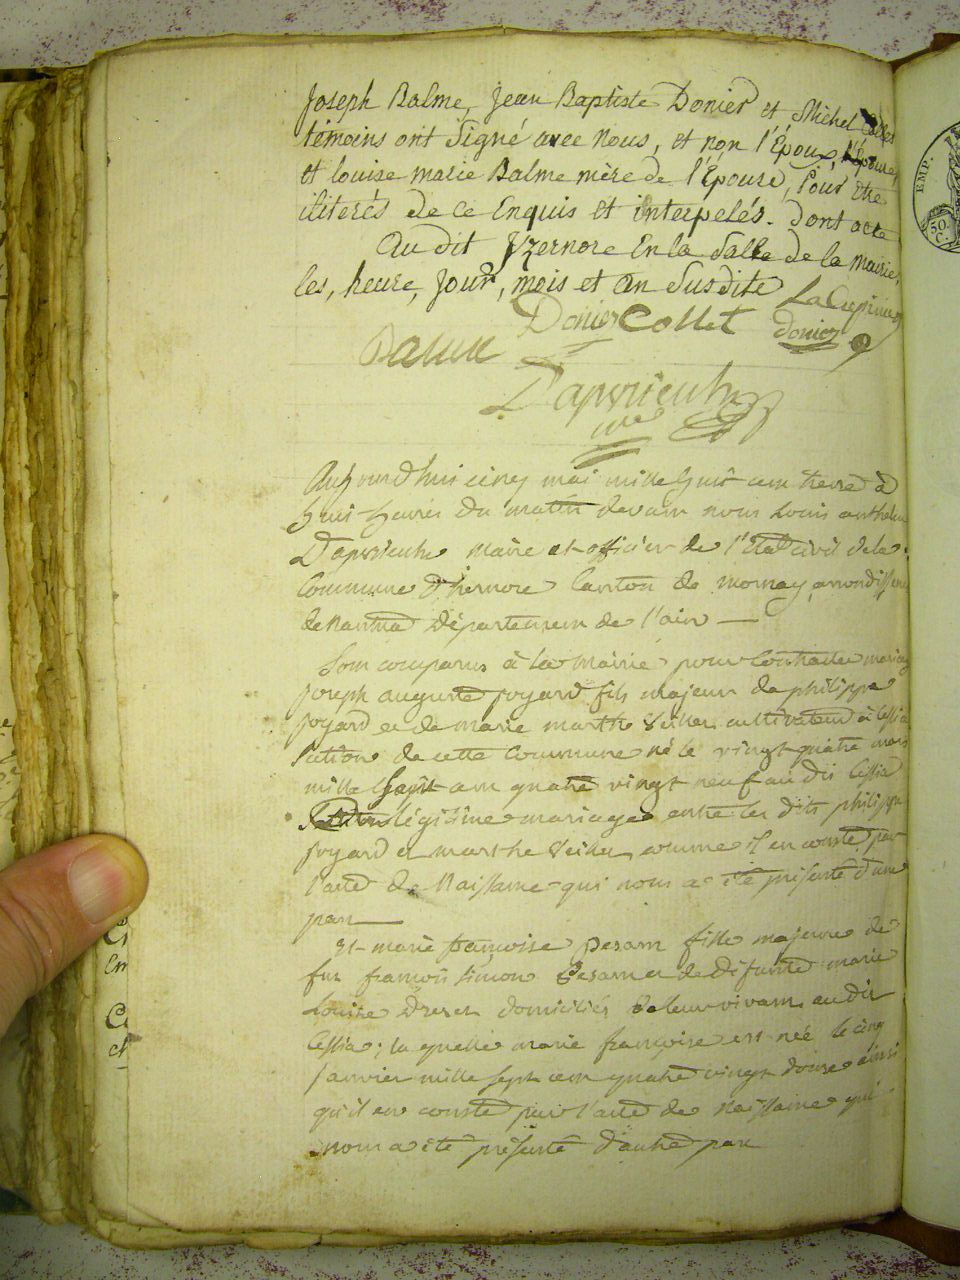 Joseph Balme, Jean Baptiste Donier et Michel Collet
témoins ont Signé avec Nous, et non l'Époux, l'Épouse,
et louise marie Balme mère de l'Épouse, Pour Etre
iliterés de ce Enquis et interpelés. Dont acte
Au dit Yzernore En la Salle de la Mairie,
les, heure, Jour, mois et an Susdits
Donier Collet
donier
Balme
Aujourdhui cinq mai mille huit cent treize à
huit heures du matin devant nous Louis anthelme
maire et officier de l'Etat civil de la
Commune d'Izernore Canton de mornay, arrondissement
de Nantua Département de l'ain
Sont comparus à la Mairie pour Contracter mariage
joseph auguste joyard fils majeur de philippe
joyard et de marie marthe cultivateur à Cessia
Section de cette Commune né le vingt quatre mars
mille Sept cent quatre vingt neuf au dit Cessia
légitime mariage entre les dits philippe
joyard et marthe comme il en conste par
l'acte de Naissance qui nous a été présenté d'une
part
Et marie françoise fille majeure de
feu françois Simon et de Défunte marie
Louise domiciliés de leur vivant au dit
Cessia; la quelle marie françoise est née le cinq
Janvier mille sept cent quatre vingt douze ainsi
qu'il en conste par l'acte de Naissance qui
nous a été présenté d'autre part
EMP.
50
C.